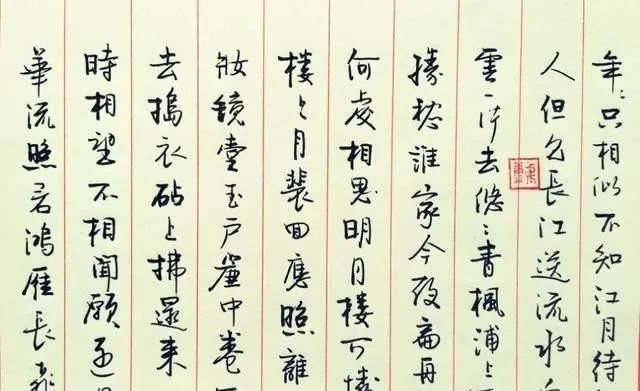 年〻只相似不知江月待
人但見長江送流水
雲一片去悠〻青楓浦上
勝愁誰家今夜扁舟
何處相思明月楼可憐
楼上月裴回應照離
妝鏡臺玉户簾中卷
去搗衣砧上拂還来
時相望不相聞願逐
華流照君鴻雁長飛